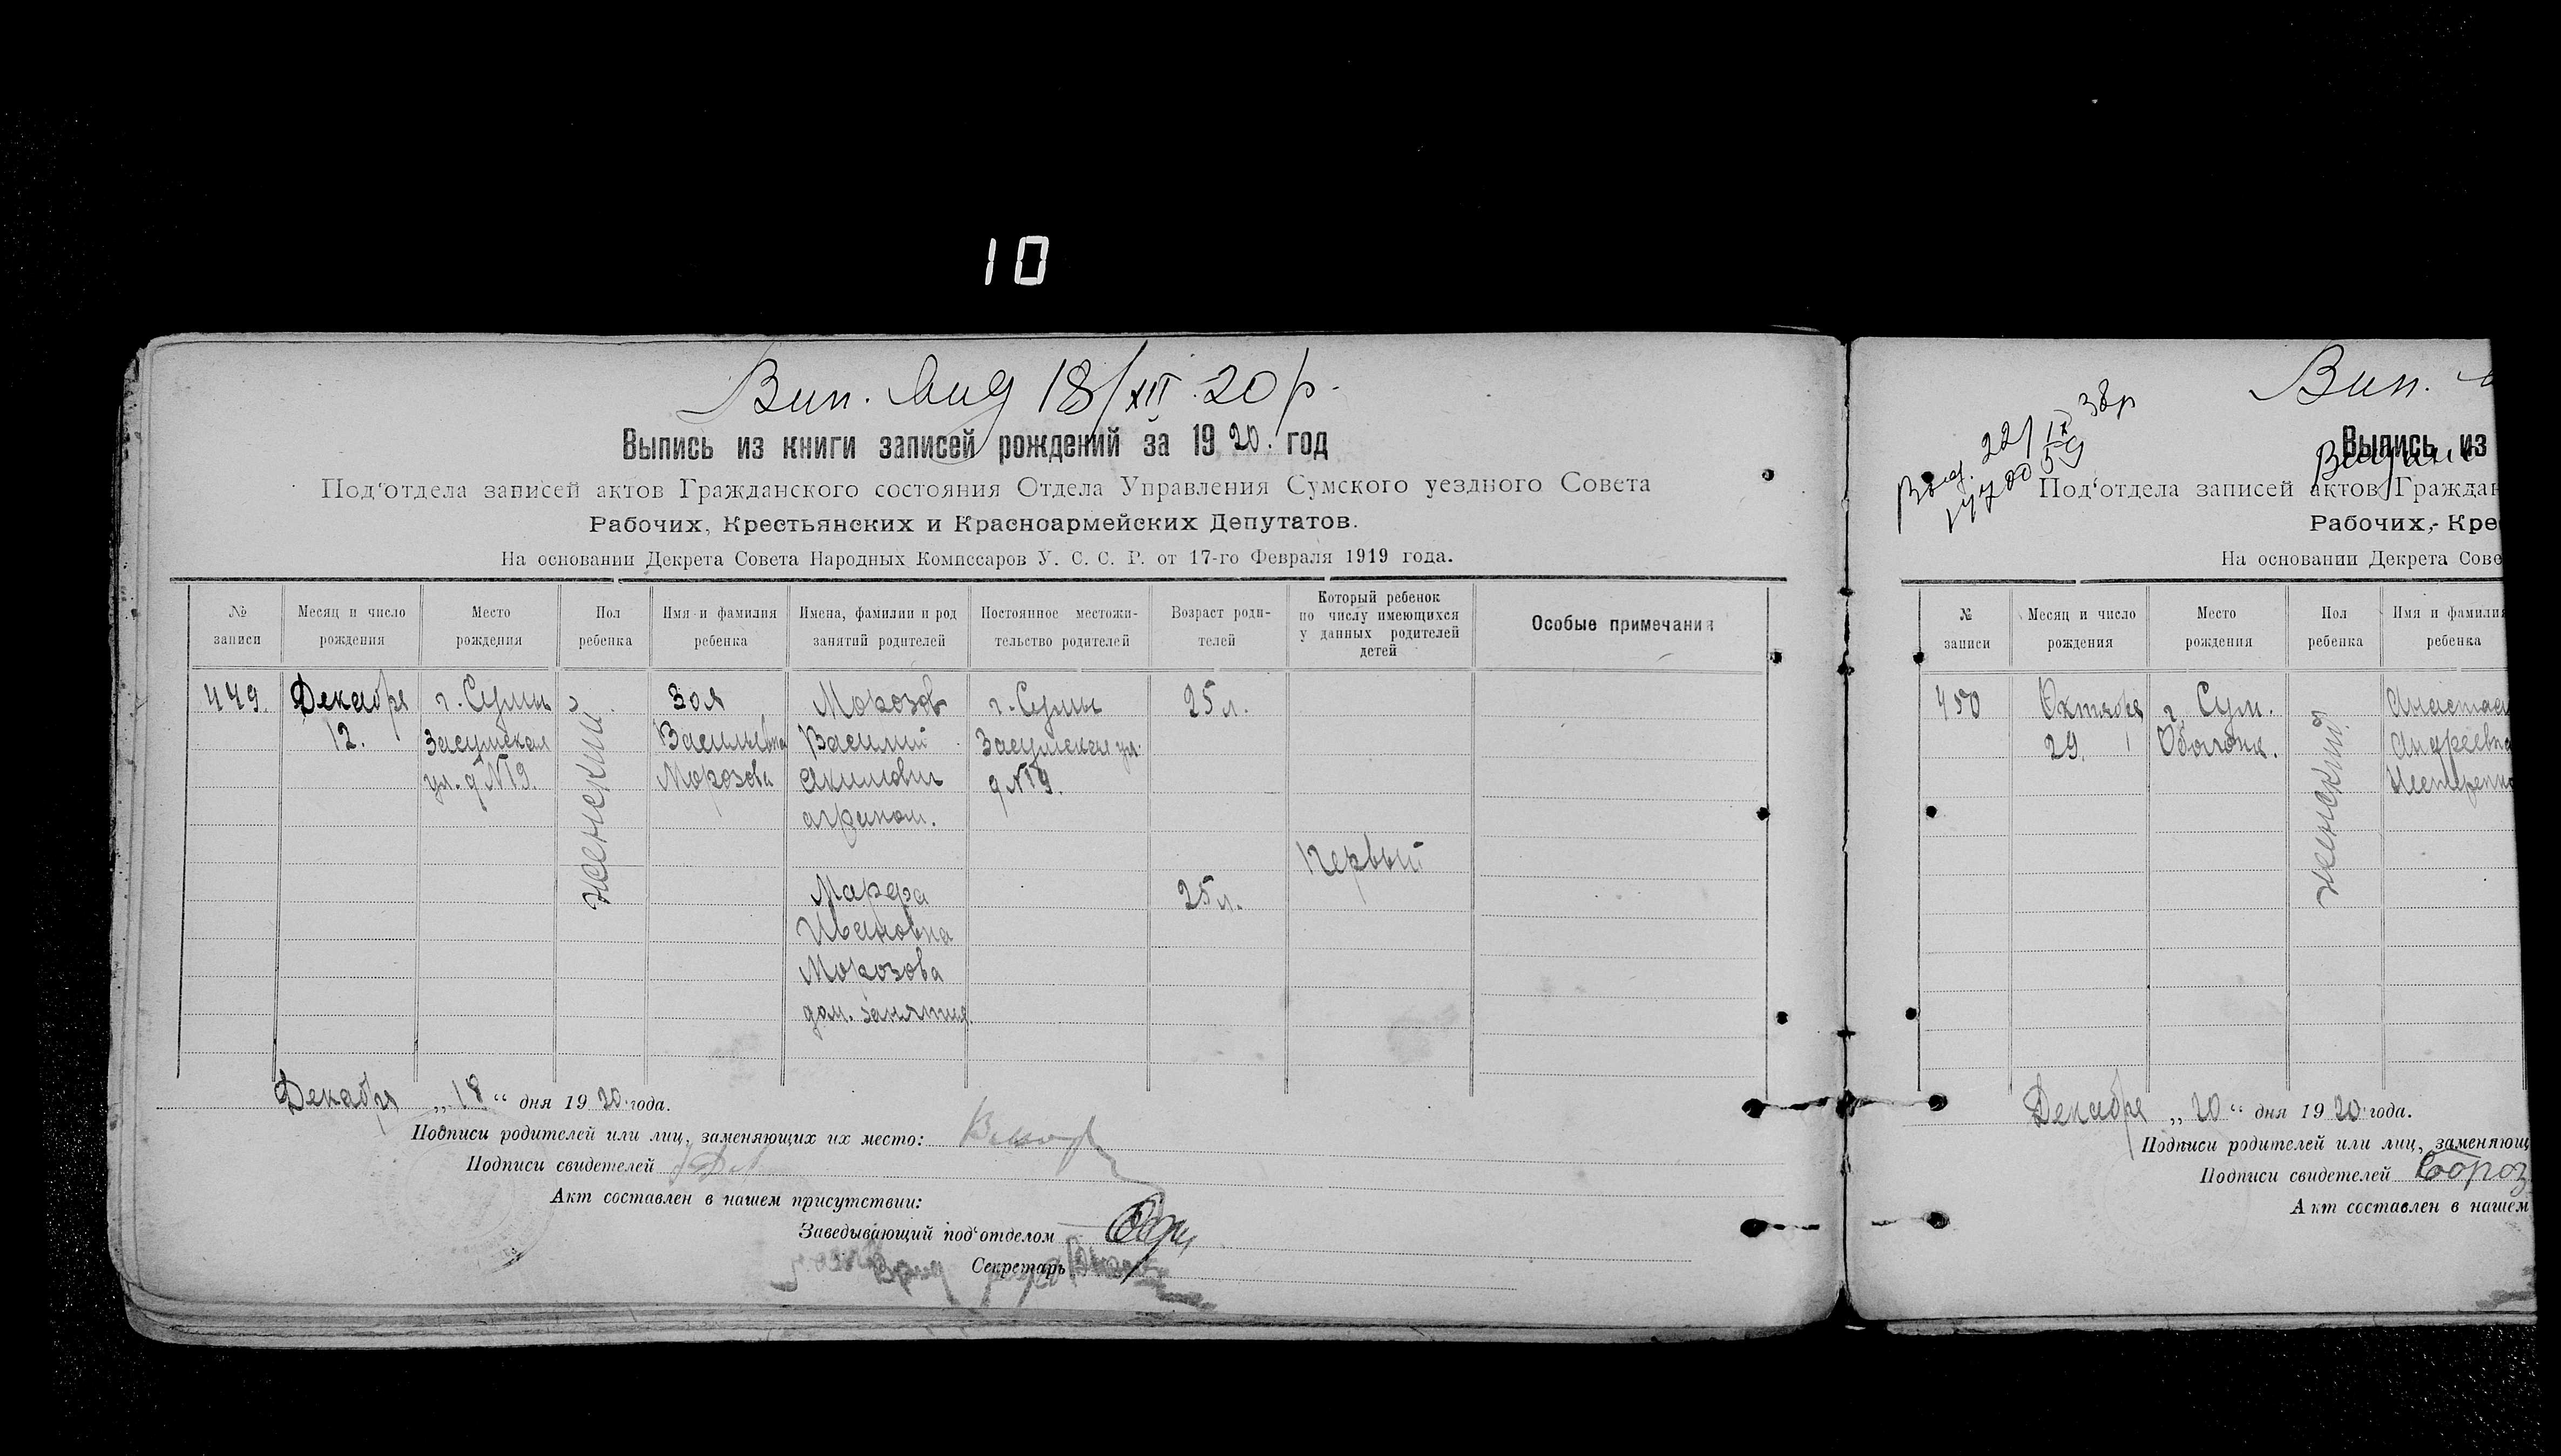 10
Вип. вид 18/XII 20 р.
Выпись из книги записей рождений за 1920. год
Под‘отдела записей актов Гражданского состояния Отдела Управления Сумского уездного Совета
Рабочих, Крестьянских и Красноармейских Депутатов.
На основании Декрета Совета Народных Комиссаров У. С. С. Р. от 17-го Февраля 1919 года.
№ записи
Месяц и число рождения
Место рождения
Пол ребенка
Имя и фамилия ребенка
Имена, фамилии и род занятий родителей
Постоянное местожительство родителей
Возраст родителей
Который ребенок по числу имеющихся у данных родителей детей
Особые примечания
449.
Декабря
12.
г. Сумы
Засумская
ул. д №19.
женский
Зоя
Васильевна
Морозова
Морозов
Василий
Акимович
агроном.
Марфа
Ивановна
Морозова
дом. занятия.
г. Сумы
Засумская ул.
д №19.
25 л.
25 л.
Первый
Декабря „18“ дня 1920 года.
Подписи родителей или лиц, заменяющих их место:
Подписи свидетелей
Акт составлен в нашем присутствии:
Заведывающий под‘отделом
Секретарь
Вип.
22/IX 38р
Выпись из
Под‘отдела записей актов Граждан
Рабочих, Кре
На основании Декрета Сове
№ записи
Месяц и число рождения
Место рождения
Пол ребенка
Имя и фамилия ребенка
450
Октября
29.
г. Сум.
Оболонь.
женский
Анастас
Андреевна
Нестеренко
Декабря „20“ дня 1920 года.
Подписи родителей или лиц, заменяющ
Подписи свидетелей
Акт составлен в нашем